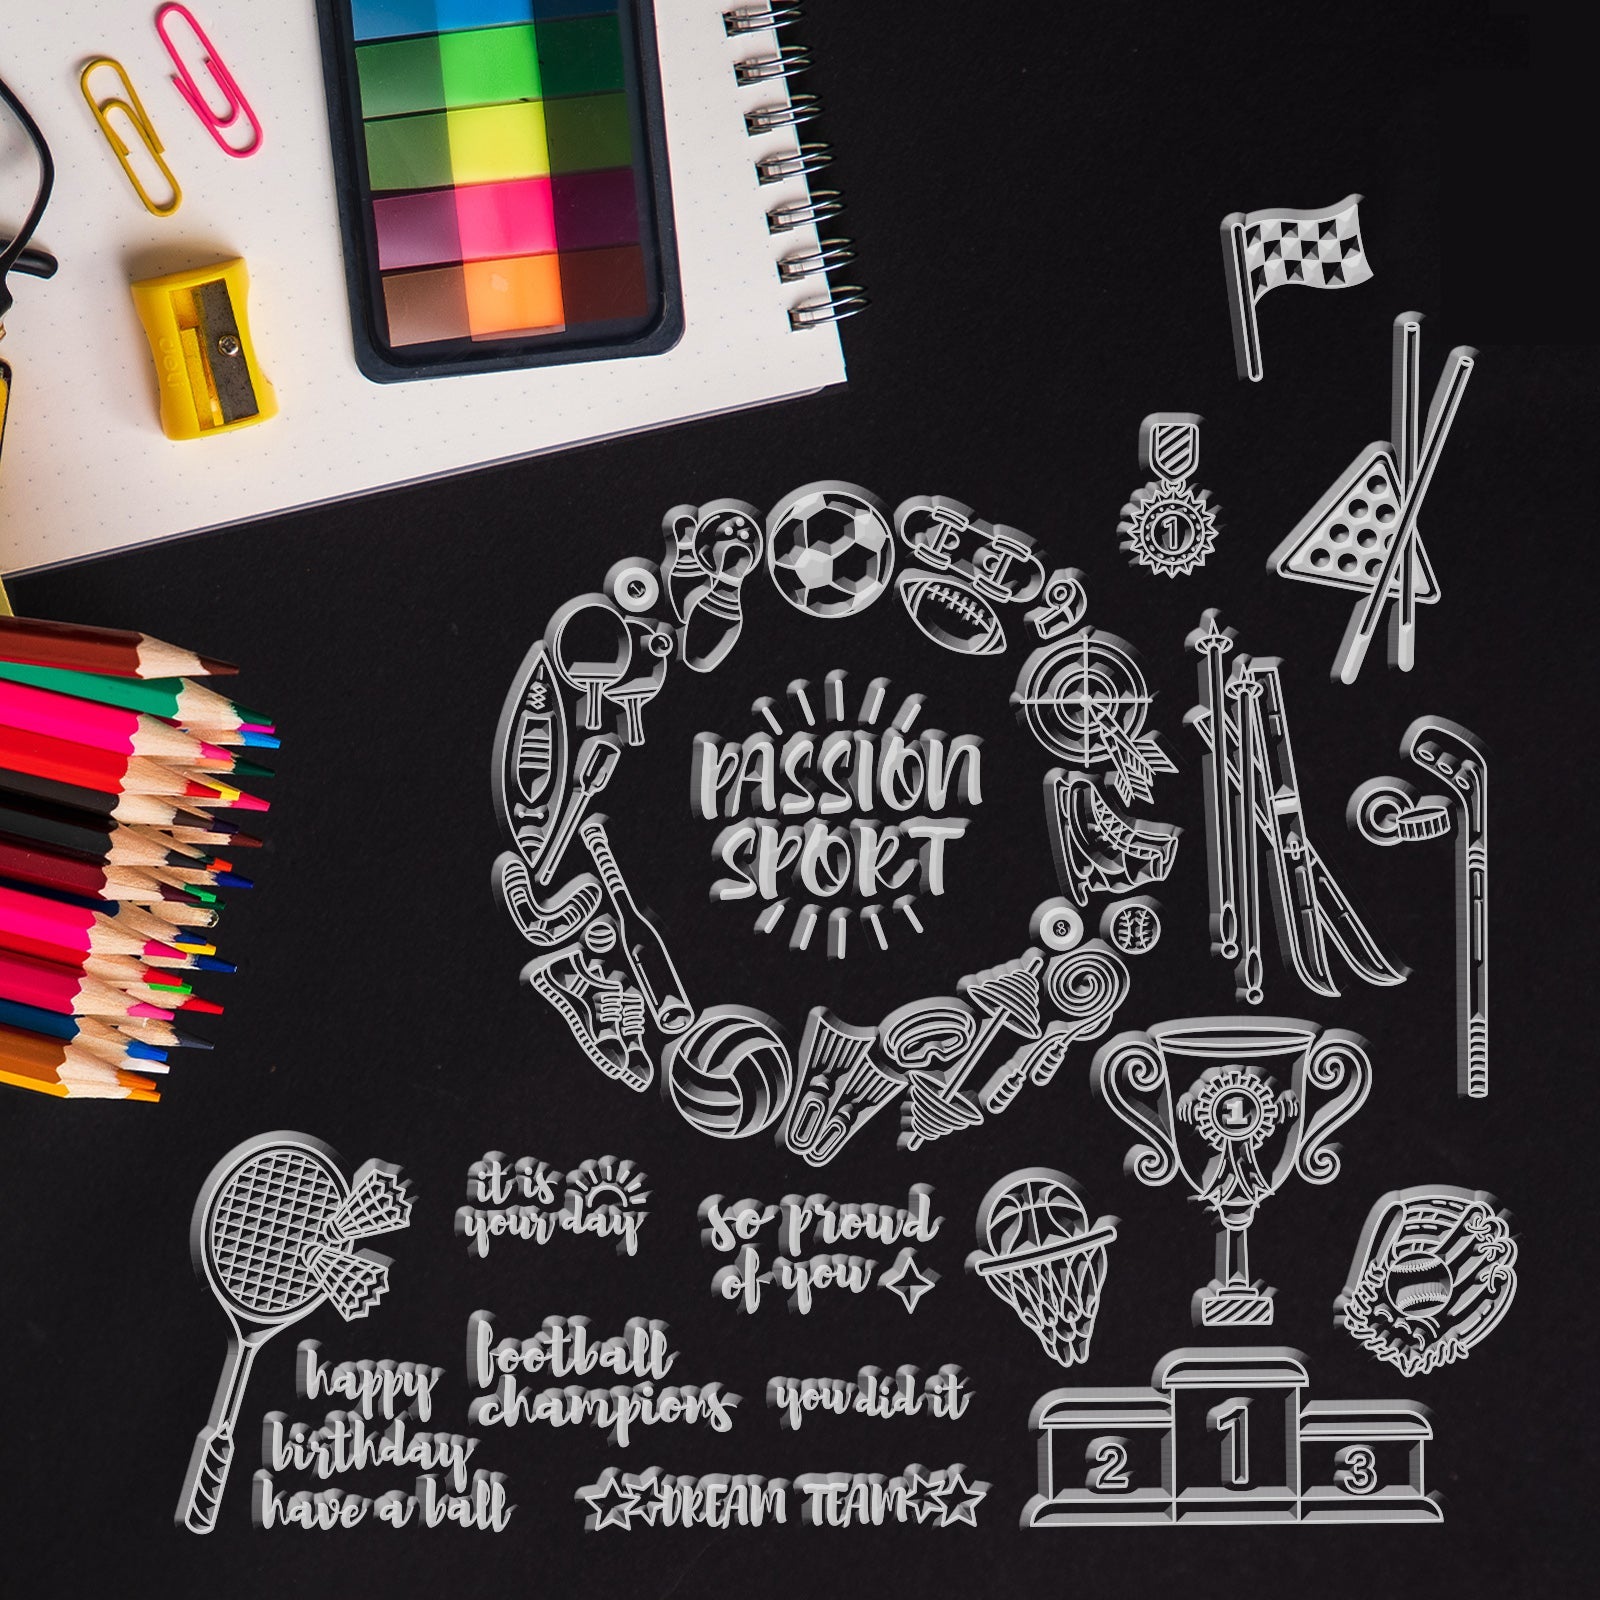 neo
1
1
PASSION
SPORT
8
1
it is
your day
so proud
of you
football
champions
you did it
happy
birthday
have a ball
DREAM TEAM
1
2
3